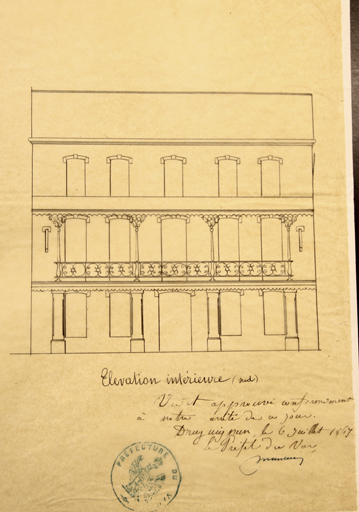 Elevation intérieure (sud)
Vu et approuvé conformément
à notre arrêté de ce jour.
Draguignan, le 6 Juillet 1867
le Préfet du Var,
PREFECTURE DU